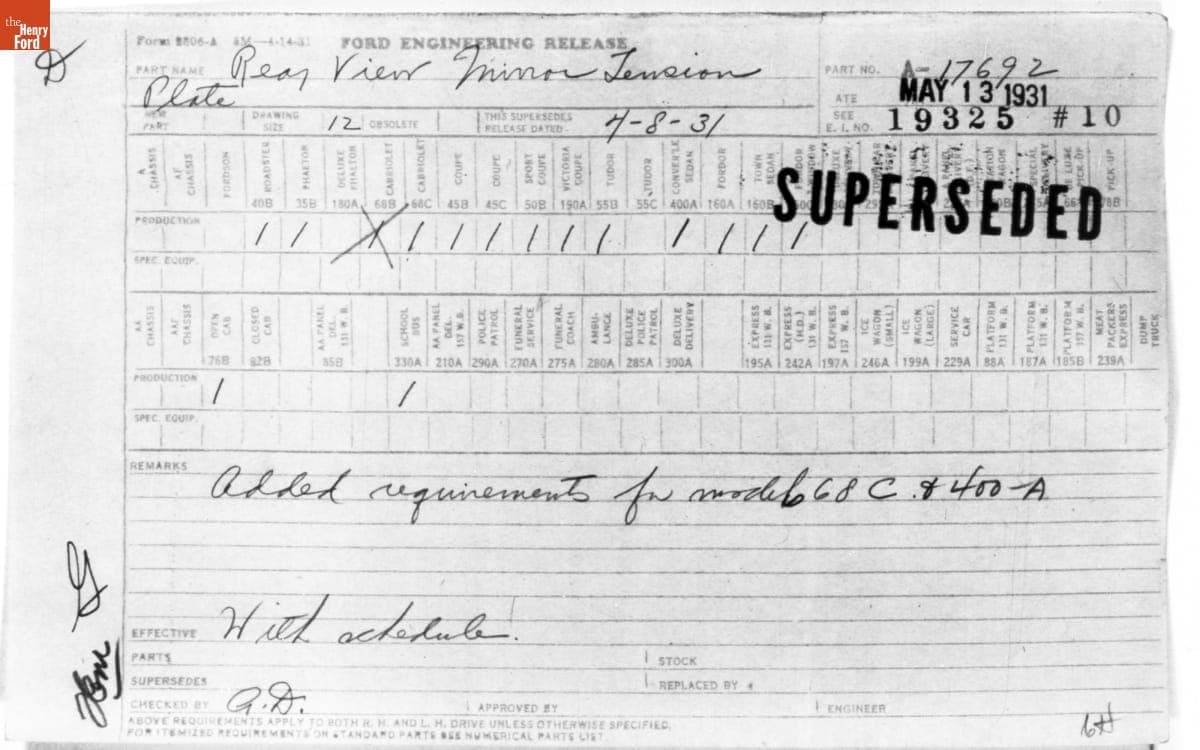 the
Henry
Ford
D
FORD ENGINEERING RELEASE
PART NAME Rear View Mirror Tension
Plate
PART NO. A-17692
MAY 13 1931
SEE
E. I. NO. 19325 #10
NEW
PART
DRAWING
SIZE 12 OBSOLETE
THIS SUPERSEDES
RELEASE DATED. 4-8-31
A CHASSIS AF CHASSIS FORDON ROADSTER PHAETON DELUXE PHAETON CABRIOLET CABRIOLET COUPE COUPE SPORT COUPE VICTORIA COUPE TUDOR TUDOR CONVER'LE SEDAN FORDOR TOWN SEDAN PICK-UP
40B 35B 180A 68B 68C 45B 45C 50B 190A 55B 55C 400A 160A 160B
SUPERSEDED
PRODUCTION 1 1 X 1 1 1 1 1 1 1 1 1 1 1
SPEC. EQUIP.
AA CHASSIS AAF CHASSIS OPEN CAB CLOSED CAB AA PANEL DEL. 131 W. B. SCHOOL BUS AA PANEL DEL. 157 W. B. POLICE PATROL FUNERAL SERVICE FUNERAL COACH AMBU-LANCE DELUXE POLICE PATROL DELUXE DELIVERY EXPRESS 131 W. B. EXPRESS (H.D.) 131 W. B. EXPRESS 157 W. B. ICE WAGON (SMALL) ICE WAGON (LARGE) SERVICE CAR PLATFORM 131 W. B. PLATFORM 131 W. B. PLATFORM 157 W. B. MEAT PACKERS EXPRESS DUMP TRUCK
76B 82B 85B 330A 210A 290A 270A 275A 280A 285A 300A 195A 242A 197A 246A 199A 229A 88A 187A 185B 239A
PRODUCTION 1 1
SPEC. EQUIP.
REMARKS
Added requirements for models 68C & 400-A
EFFECTIVE With schedule.
PARTS STOCK
SUPERSEDES REPLACED BY
CHECKED BY G.D. APPROVED BY ENGINEER
ABOVE REQUIREMENTS APPLY TO BOTH R. H. AND L. H. DRIVE UNLESS OTHERWISE SPECIFIED.
FOR ITEMIZED REQUIREMENTS ON STANDARD PARTS SEE NUMERICAL PARTS LIST.